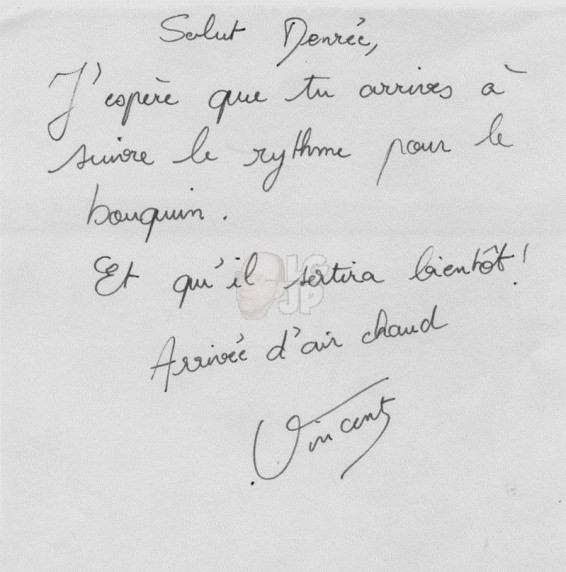 Salut Denrée,
J'espère que tu arrives à
suivre le rythme pour le
bouquin.
Et qu'il sortira bientôt!
LG
JP
Arrivée d'air chaud
Vincent